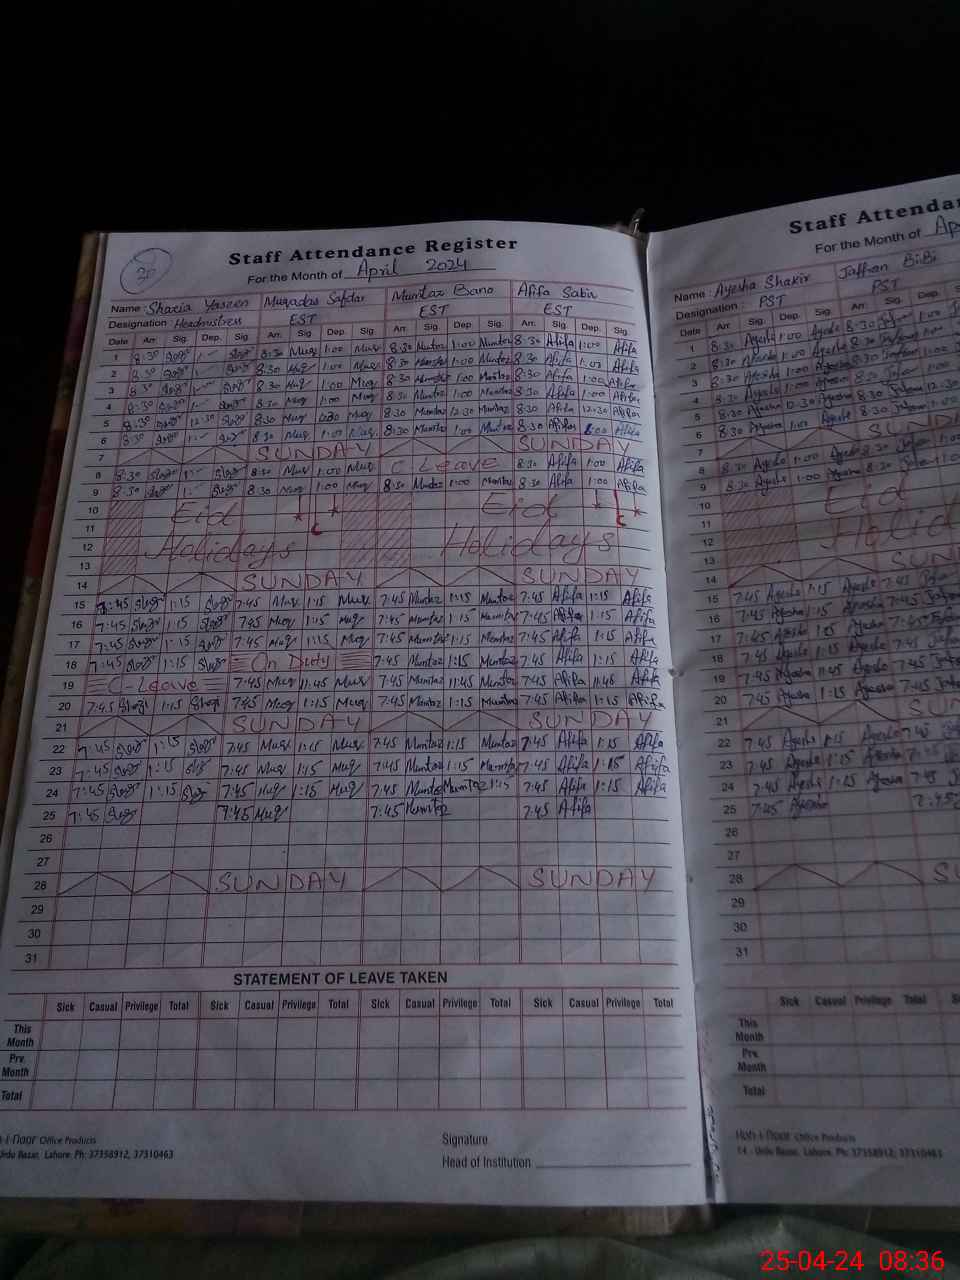 30
Staff Attendance Register
For the Month of April 2024
Name : Shazia Yaseen Muqadas Safdar Mumtaz Bano Afifa Sabir
Designation : Headmistress EST EST EST
Date Arr. Sig. Dep. Sig. Arr. Sig. Dep. Sig. Arr. Sig. Dep. Sig. Arr. Sig. Dep. Sig.
1 8:30 8:30 Muq 1:00 Muq 8:30 Mumtaz 1:00 Mumtaz 8:30 Afifa 1:00 Afifa
2 8:30 8:30 Muq 1:00 Muq 8:30 Mumtaz 1:00 Mumtaz 8:30 Afifa 1:00 Afifa
3 8:30 8:30 Muq 1:00 Muq 8:30 Mumtaz 1:00 Mumtaz 8:30 Afifa 1:00 Afifa
4 8:30 8:30 Muq 1:00 Muq 8:30 Mumtaz 1:00 Mumtaz 8:30 Afifa 1:00 Afifa
5 8:30 12:30 8:30 Muq 12:30 Muq 8:30 Mumtaz 12:30 Mumtaz 8:30 Afifa 12:30 Afifa
6 8:30 8:30 Muq 1:00 Muq 8:30 Mumtaz 1:00 Mumtaz 8:30 Afifa 1:00 Afifa
7 SUNDAY SUNDAY
8 8:30 8:30 Muq 1:00 Muq C Leave 8:30 Afifa 1:00 Afifa
9 8:30 8:30 Muq 1:00 Muq 8:30 Mumtaz 1:00 Mumtaz 8:30 Afifa 1:00 Afifa
10 Eid Eid
11
12 Holidays Holidays
13
14 SUNDAY SUNDAY
15 7:45 1:15 7:45 Muq 1:15 Muq 7:45 Mumtaz 1:15 Mumtaz 7:45 Afifa 1:15 Afifa
16 7:45 1:15 7:45 Muq 1:15 Muq 7:45 Mumtaz 1:15 Mumtaz 7:45 Afifa 1:15 Afifa
17 7:45 1:15 7:45 Muq 1:15 Muq 7:45 Mumtaz 1:15 Mumtaz 7:45 Afifa 1:15 Afifa
18 7:45 1:15 On Duty 7:45 Mumtaz 1:15 Mumtaz 7:45 Afifa 1:15 Afifa
19 C-Leave 7:45 Muq 11:45 Muq 7:45 Mumtaz 11:45 Mumtaz 7:45 Afifa 11:45 Afifa
20 7:45 1:15 7:45 Muq 1:15 Muq 7:45 Mumtaz 1:15 Mumtaz 7:45 Afifa 1:15 Afifa
21 SUNDAY SUNDAY
22 7:45 1:15 7:45 Muq 1:15 Muq 7:45 Mumtaz 1:15 Mumtaz 7:45 Afifa 1:15 Afifa
23 7:45 1:15 7:45 Muq 1:15 Muq 7:45 Mumtaz 1:15 Mumtaz 7:45 Afifa 1:15 Afifa
24 7:45 1:15 7:45 Muq 1:15 Muq 7:45 Mumtaz Mumtaz 1:15 7:45 Afifa 1:15 Afifa
25 7:45 7:45 Muq 7:45 Mumtaz 7:45 Afifa
26
27
28 SUNDAY SUNDAY
29
30
31
STATEMENT OF LEAVE TAKEN
Sick Casual Privilege Total Sick Casual Privilege Total Sick Casual Privilege Total Sick Casual Privilege Total
This Month
Prv. Month
Total
Office Products
Urdu Bazar, Lahore. Ph: 37358912, 37310463
Signature
Head of Institution
Staff Attendan
For the Month of Ap
Name : Ayesha Shakir Jaffran BiBi
Designation : PST PST
Date Arr. Sig. Dep. Sig. Arr. Sig. Dep.
1 8:30 Ayesha 1:00 Ayesha 8:30
2 8:30 Ayesha 1:00 Ayesha 8:30
3 8:30 Ayesha 1:00 Ayesha 8:30
4 8:30 Ayesha 1:00 Ayesha 8:30
5 8:30 Ayesha 12:30 Ayesha 8:30 12:30
6 8:30 Ayesha 1:00 Ayesha 8:30
7 SUND
8 8:30 Ayesha 1:00 Ayesha 8:30
9 8:30 Ayesha 1:00 Ayesha 8:30
10 Eid
11
12 Holid
13
14 SUN
15 7:45 Ayesha 1:15 Ayesha 7:45
16 7:45 Ayesha 1:15 Ayesha 7:45
17 7:45 Ayesha Ayesha 7:45
18 7:45 Ayesha 1:15 Ayesha 7:45
19 7:45 Ayesha 11:45 Ayesha 7:45
20 7:45 Ayesha 1:15 Ayesha 7:45
21 SUN
22 7:45 Ayesha 1:15 Ayesha 7:45
23 7:45 Ayesha 1:15 Ayesha 7:45
24 7:45 Ayesha 1:15 Ayesha 7:45
25 7:45 Ayesha 7:45
26
27
28 SU
29
30
31
Sick Casual Privilege Total
This Month
Prv. Month
Total
Office Products
14 - Urdu Bazar, Lahore. Ph: 37358912, 37310463
25-04-24 08:36